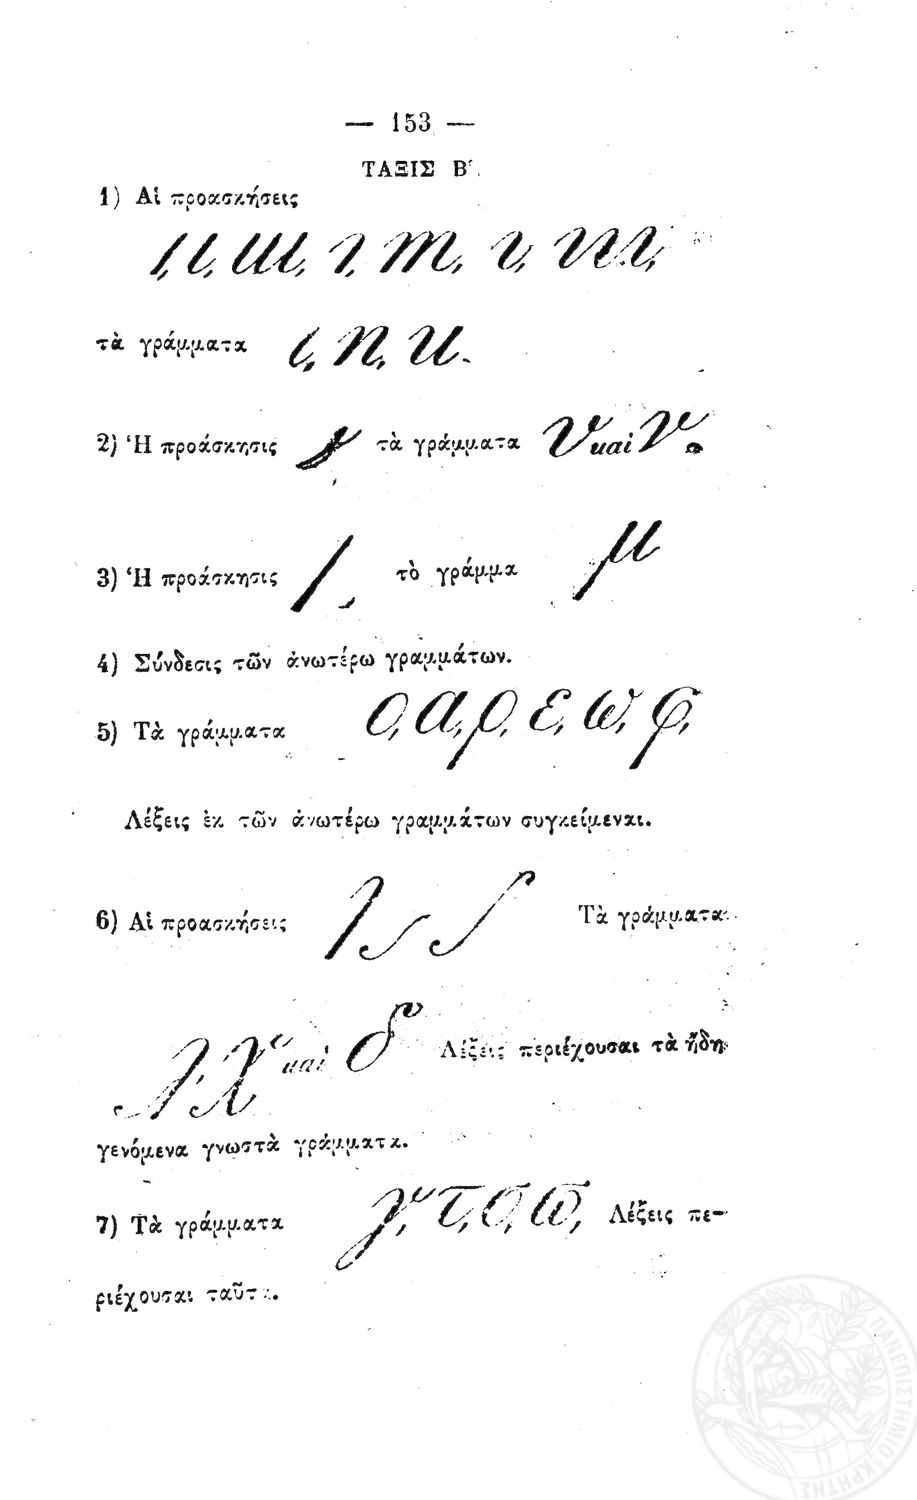 — 153 —
ΤΑΞΙΣ Β΄.
1) Αἱ προασκήσεις
τὰ γράμματα ι, η, υ.
2) Ἡ προάσκησις τὰ γράμματα υ καὶ ν.
3) Ἡ προάσκησις τὸ γράμμα μ
4) Σύνδεσις τῶν ἀνωτέρω γραμμάτων.
5) Τὰ γράμματα ο, α, ρ, ε, ω, φ,
Λέξεις ἐκ τῶν ἀνωτέρω γραμμάτων συγκείμεναι.
6) Αἱ προασκήσεις Τὰ γράμματα
λ χ καὶ δ Λέξεις περιέχουσαι τὰ ἤδη
γενόμενα γνωστὰ γράμματα.
7) Τὰ γράμματα γ, τ, σ, ϖ, Λέξεις πε-
ριέχουσαι ταῦτα.
ΠΑΝΕΠΙΣΤΗΜΙΟ ΚΡΗΤΗΣ